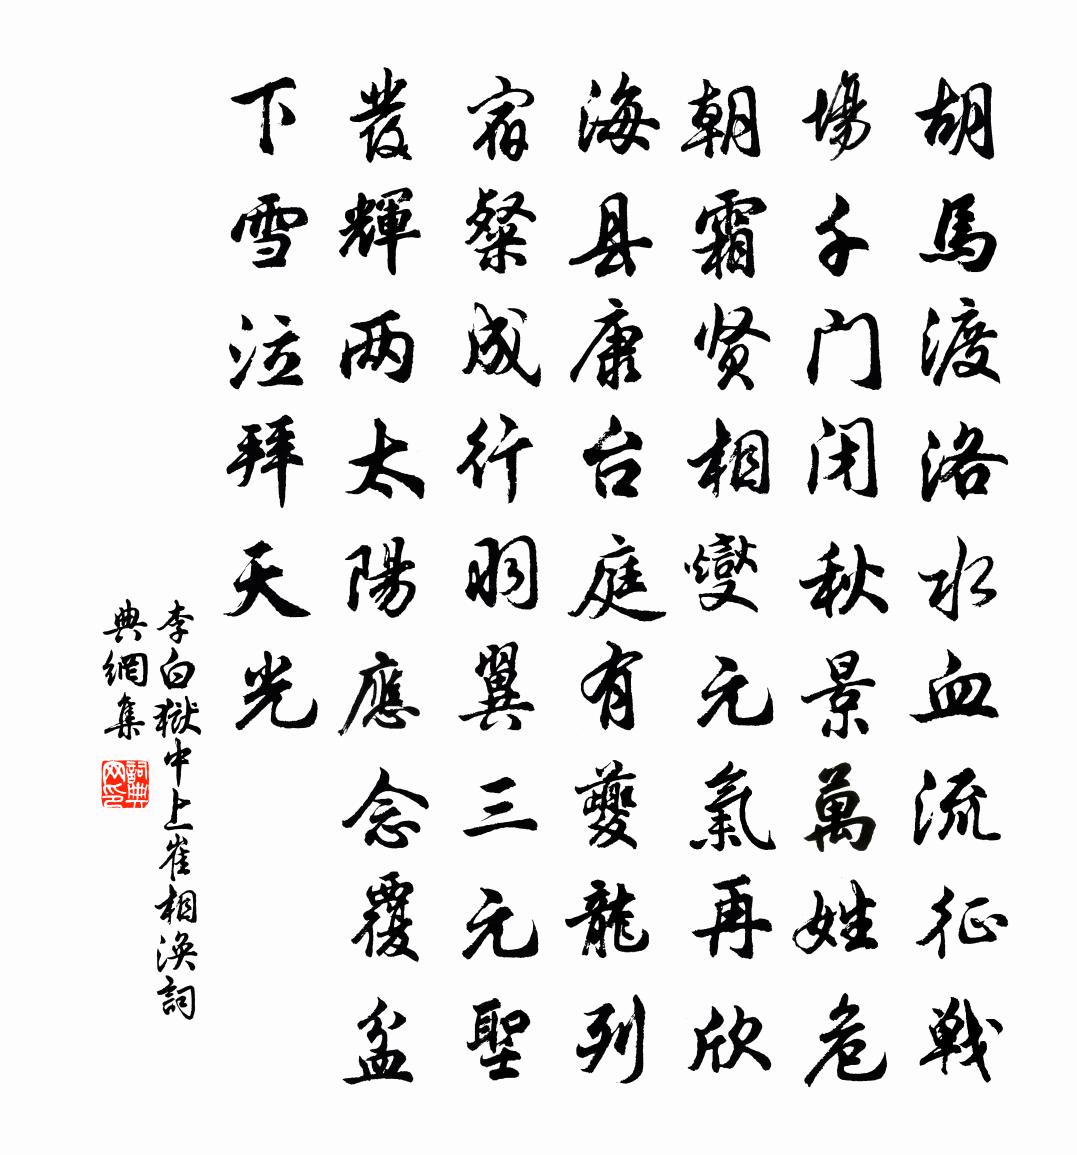 胡馬渡洛水血流征戦
場千门闭秋景萬姓危
朝霜贤相燮元氣再欣
海县康台庭有夔龍列
宿粲成行羽翼三元聖
發輝两太陽應念覆盆
下雪泣拜天光
李白獄中上崔相渙詞
典網集
詞典
网印